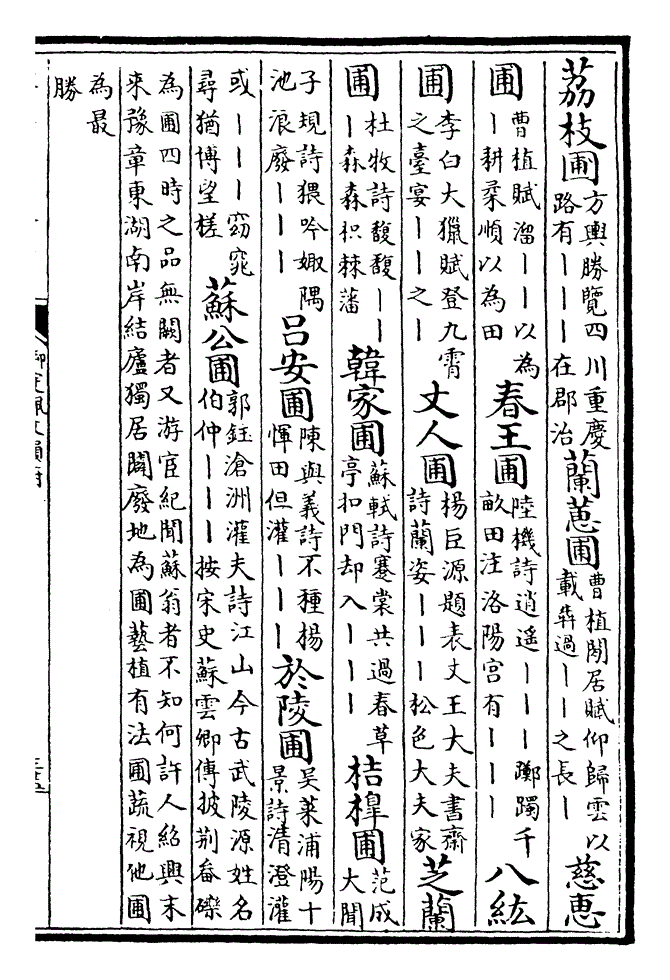 荔枝圃 方輿勝覽四川重慶路有｜｜｜在郡治 蘭蕙圃 曹植閒居賦仰歸雲以載犇過｜｜之長｜ 慈惠
圃 曹植賦溜｜｜以為｜耕柔順以為田 春王圃 陸機詩逍遙｜｜｜躑躅千畝田注洛陽宫有｜｜｜ 八紘
圃 李白大獵賦登九霄之臺宴｜｜之｜ 丈人圃 楊巨源題表丈王大夫書齋詩蘭姿｜｜｜松色大夫家 芝蘭
圃 杜牧詩馥馥｜｜｜森森枳棘藩 韓家圃 蘇軾詩褰裳共過春草亭扣門却入｜｜｜ 桔橰圃 范成大聞
子規詩猥吟娵隅池浪廢｜｜｜ 吕安圃 陳與義詩不種楊惲田但灌｜｜｜ 於陵圃 吴萊浦陽十景詩清澄灌
或｜｜｜窈窕尋猶博望槎 蘇公圃 郭鈺滄洲灌夫詩江山今古武陵源姓名伯仲｜｜｜按宋史蘇雲卿傳披荆畚礫
為圃四時之品無闕者又游宦紀聞蘇翁者不知何許人紹興末來豫章東湖南岸結廬獨居闢廢地為圃藝植有法圃蔬視他圃
為最勝